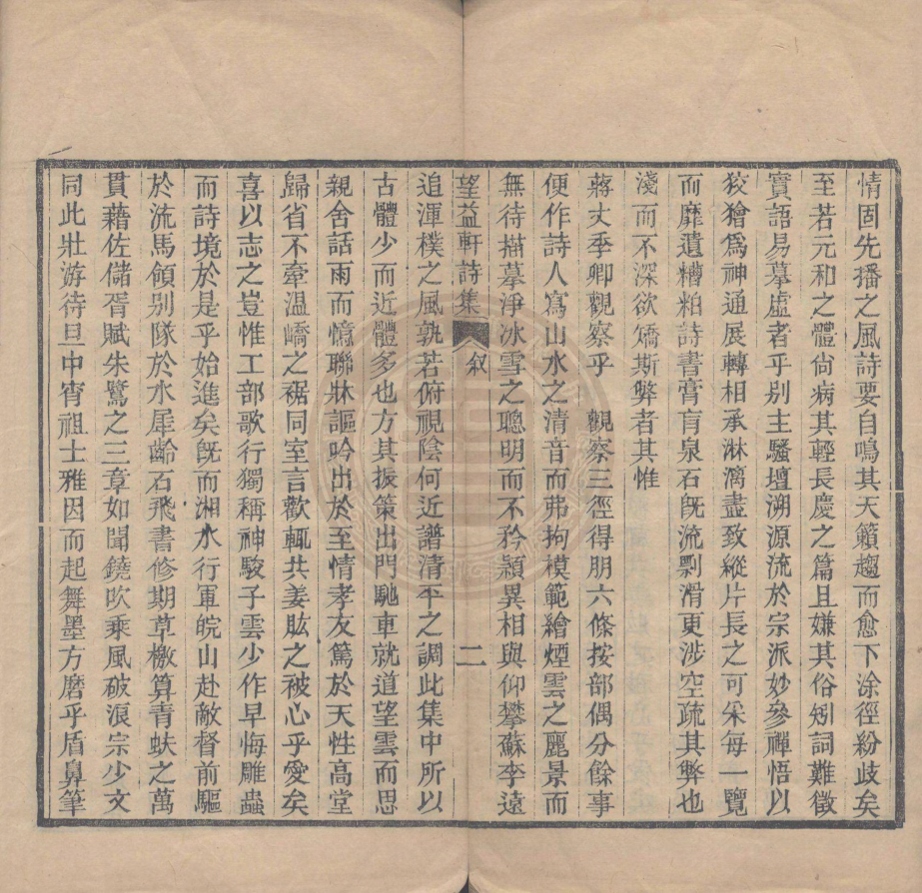 情固先播之風詩要自鳴其天籟趨而愈下涂徑紛歧矣
至若元和之體尚病其輕長慶之篇且嫌其俗矧詞難徵
實語易摹虛者乎别主騷壇溯源流於宗派妙參禪悟以
狡獪爲神通展轉相承淋漓盡致縱片長之可采每一覽
而靡遺糟粕詩書膏肓泉石旣流剽滑更涉空疏其弊也
淺而不深欲矯斯弊者其惟
蔣丈季卿觀察乎 觀察三徑得朋六條按部偶分餘事
便作詩人寫山水之清音而弗拘模範繪煙雲之麗景而
無待描摹淨冰雪之聰明而不矜穎異相與仰攀蘇李遠
望益軒詩集 叙 二
追渾樸之風孰若俯視陰何近譜清平之調此集中所以
古體少而近體多也方其振策出門馳車就道望雲而思
親舍話雨而憶聯牀謳吟出於至情孝友篤於天性高堂
歸省不牽溫嶠之裾同室言歡輒共姜肱之被心乎愛矣
喜以志之豈惟工部歌行獨稱神駿子雲少作早悔雕蟲
而詩境於是乎始進矣旣而湘水行軍皖山赴敵督前驅
於流馬領别隊於水犀齡石飛書修期草檄算青蚨之萬
貫藉佐儲胥賦朱鷺之三章如聞鐃吹乘風破浪宗少文
同此壯游待旦中宵祖士雅因而起舞墨方磨乎盾鼻筆